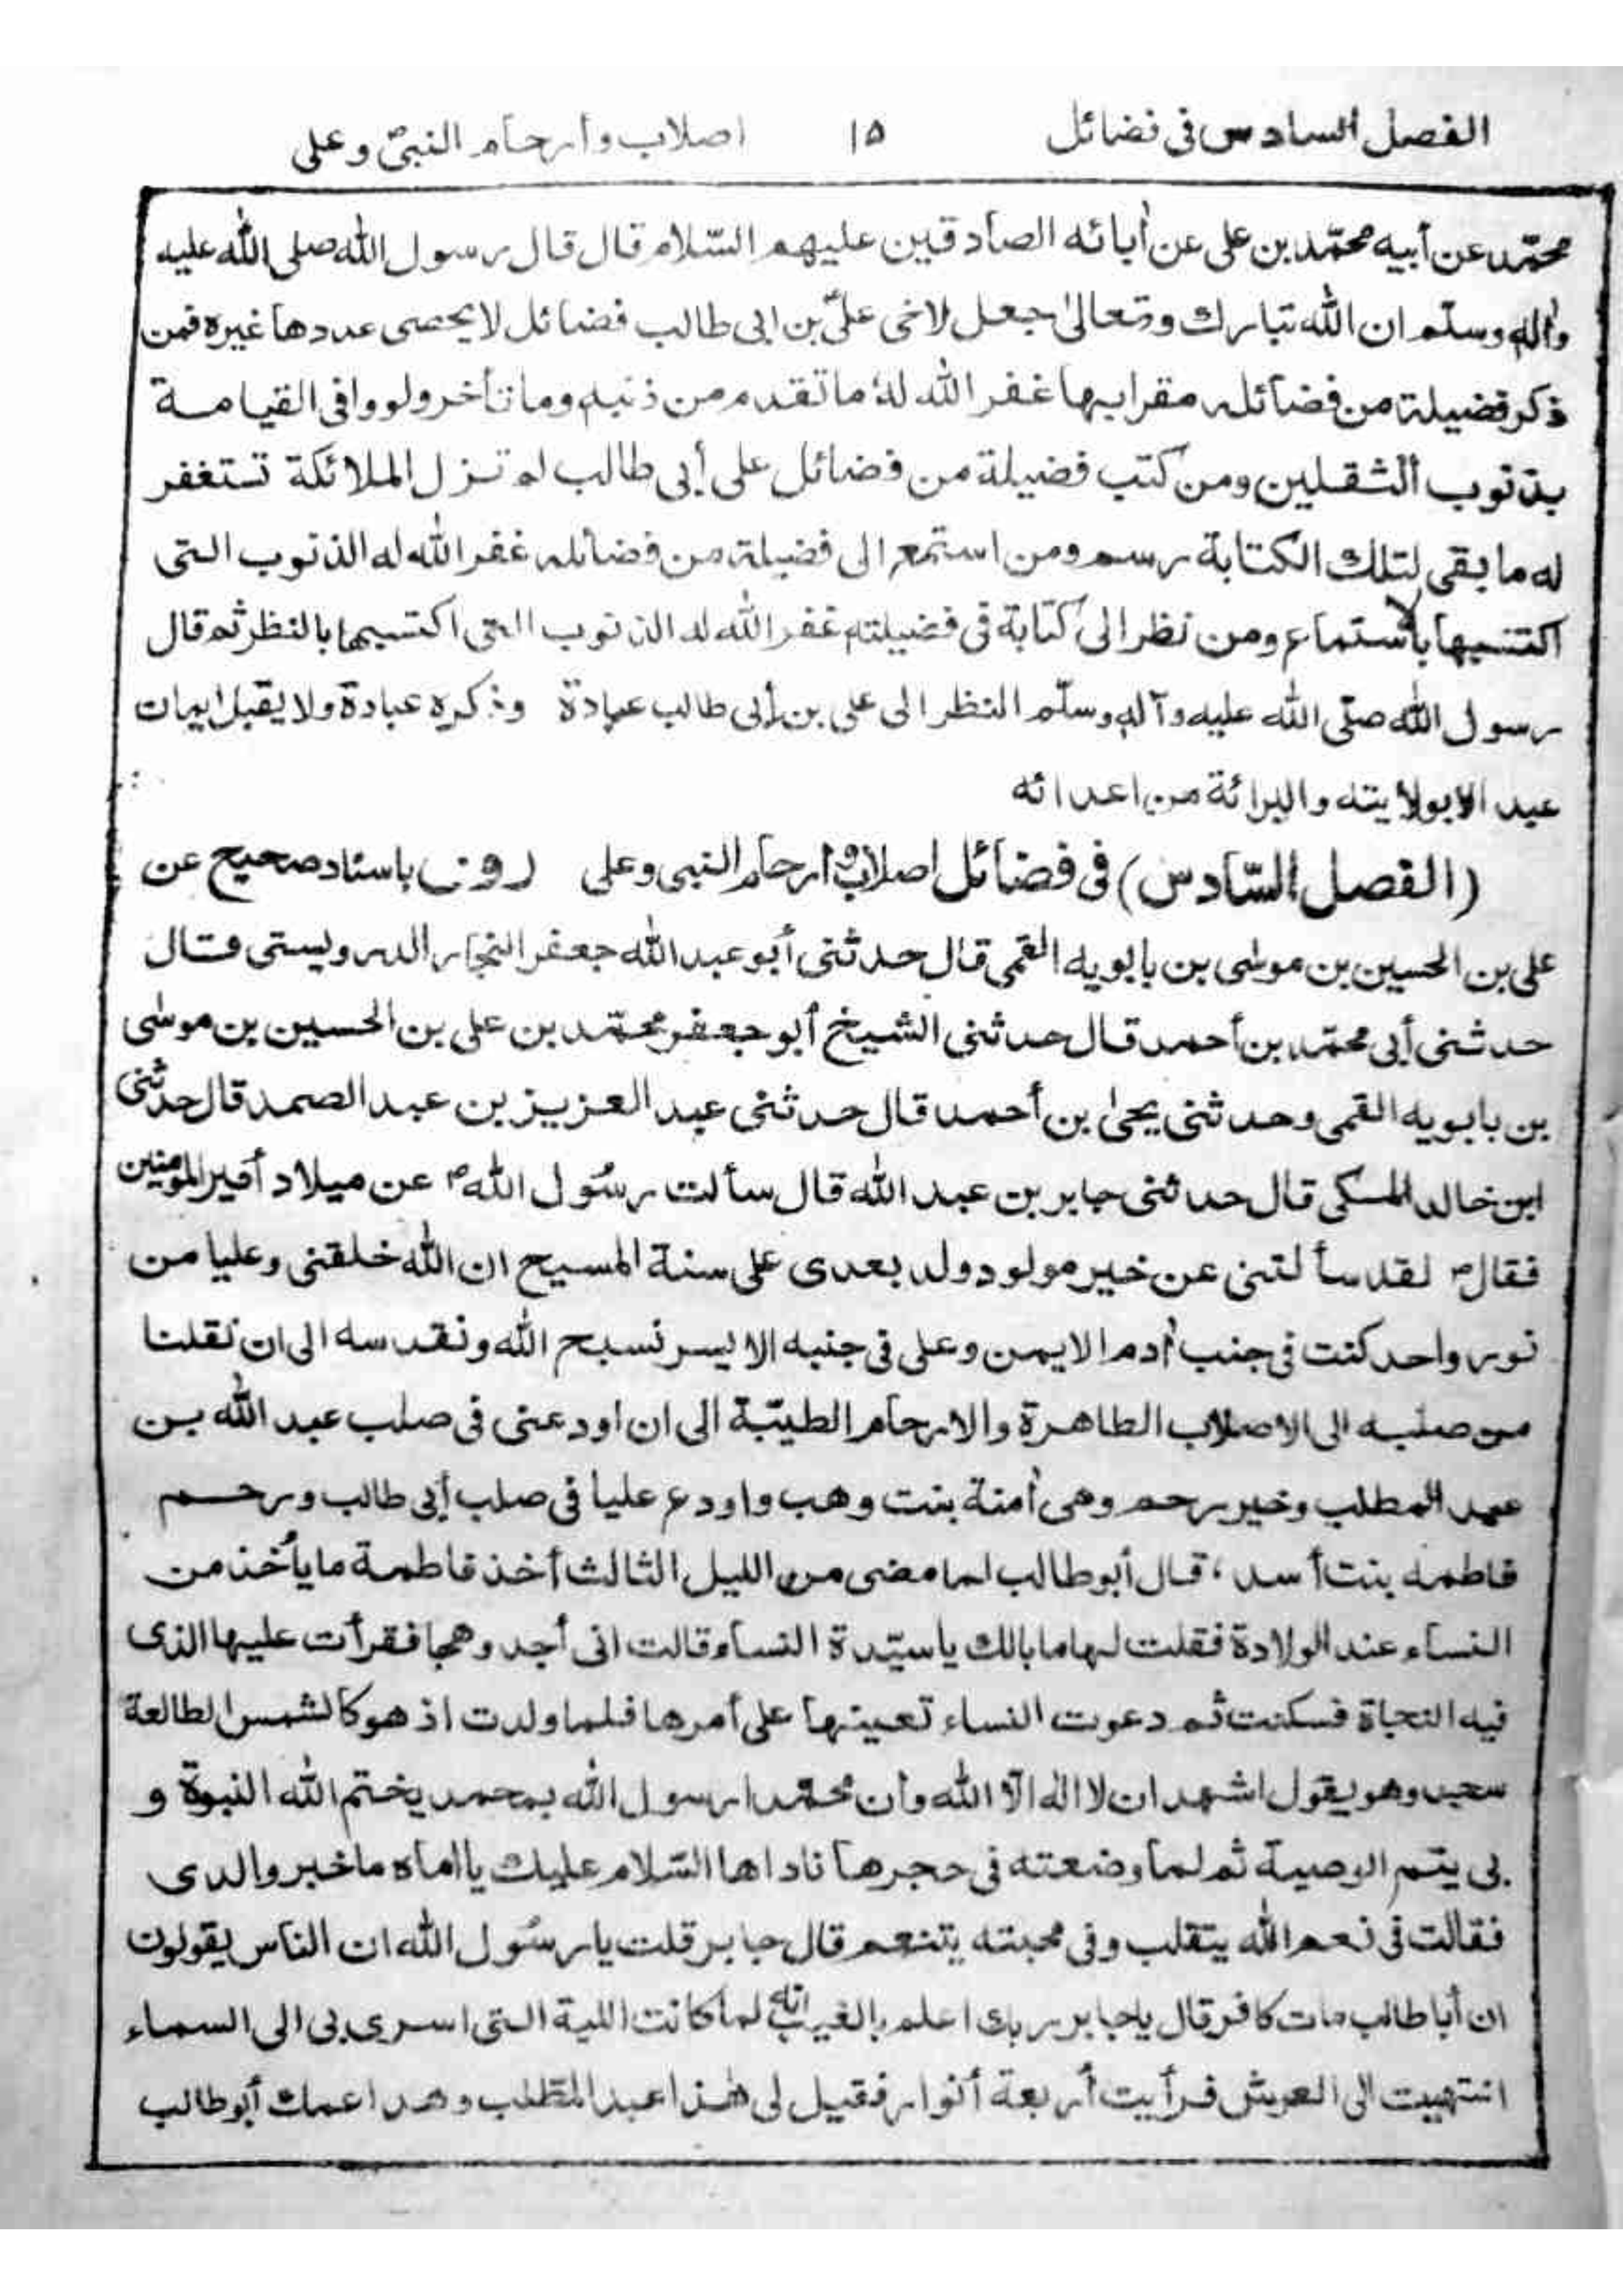 الفصل السادس فى فضائل ١٥ اصلاب وأرحام النبىّ وعلى
محمّد عن أبيه محمّد بن على عن أبائه الصادقين عليهم السّلام قال قال رسول الله صلى الله عليه
واله وسلّم ان الله تبارك وتعالىٰ جعل لاخى علىّ بن ابى طالب فضائل لا يحصى عددها غيره فمن
ذكر فضيلة من فضائله مقرا بها غفر الله له ما تقدم من ذنبه وما تأخر ولو وافى القيامة
بذنوب الثقلين ومن كتب فضيلة من فضائل على أبى طالب لم تزل الملائكة تستغفر
له ما بقى لتلك الكتابة رسم ومن استمع الى فضيلة من فضائله غفر الله له الذنوب التى
اكتسبها بالاستماع ومن نظر الى كتابة فى فضيلته غفر الله له الذنوب التى اكتسبها بالنظر ثم قال
رسول الله صلّى الله عليه وآله وسلّم النظر الى على بن أبى طالب عبادة وذكره عبادة ولا يقبل ايمان
عبد الا بولايته والبرائة من اعدائه
(الفصل السّادس) فى فضائل اصلاب وأرحام النبى وعلى روى باسناد صحيح عن
على بن الحسين بن موسٰى بن بابويه القمى قال حدثنى أبو عبد الله جعفر النجار الدرويستى قال
حدثنى أبى محمّد بن أحمد قال حدثنى الشيخ أبو جعفر محمّد بن على بن الحسين بن موسٰى
بن بابويه القمى وحدثنى يحيىٰ بن أحمد قال حدثنى عبد العزيز بن عبد الصمد قال حدثنى
ابن خالد المسكى قال حدثنى جابر بن عبد الله قال سألت رسُول الله ؐ عن ميلاد أمير المؤمنين
فقال ؐ لقد سألتنى عن خير مولود ولد بعدى على سنة المسيح ان الله خلقنى وعليا من
نور واحد كنت فى جنب أدم الايمن وعلى فى جنبه الايسر نسبح الله ونقدسه الى ان نقلنا
من صلبه الى الاصلاب الطاهرة والارحام الطيّبة الى ان اودعنى فى صلب عبد الله بن
عبد المطلب وخير رحم وهى أمنة بنت وهب واودع عليا فى صلب أبى طالب ورحم
فاطمه بنت أسد، قال أبو طالب لما مضى من الليل الثالث أخذ فاطمة ما يأخذ من
النساء عند الولادة فقلت لها ما بالك يا سيّدة النساء قالت انى أجد وهجا فقرأت عليها الذى
فيه النجاة فسكنت ثم دعوت النساء تعينها على أمرها فلما ولدت اذ هو كالشمس الطالعة
سجد وهو يقول اشهد ان لا اله الّا الله وأن محمّدا رسول الله بمحمد يختم الله النبوة و
بى يتم الوصية ثم لما وضعته فى حجرها ناداها السّلام عليك يا اماه ما خبر والدى
فقالت فى نعم الله يتقلب وفى محبته يتنعم قال جابر قلت يا رسُول الله ان الناس يقولون
ان أبا طالب مات كافر قال يا جابر ربك اعلم بالغيب انه لما كانت اللية التى اسرى بى الى السماء
انتهيت الى العرش فرأيت أربعة أنوار فقيل لى هٰذا عبد المطلب وهذا عمك أبو طالب